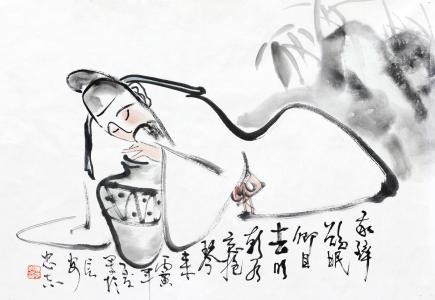 我醉
欲眠
卿且
去明
朝有
意抱
琴
来
寅
年
於
忠志